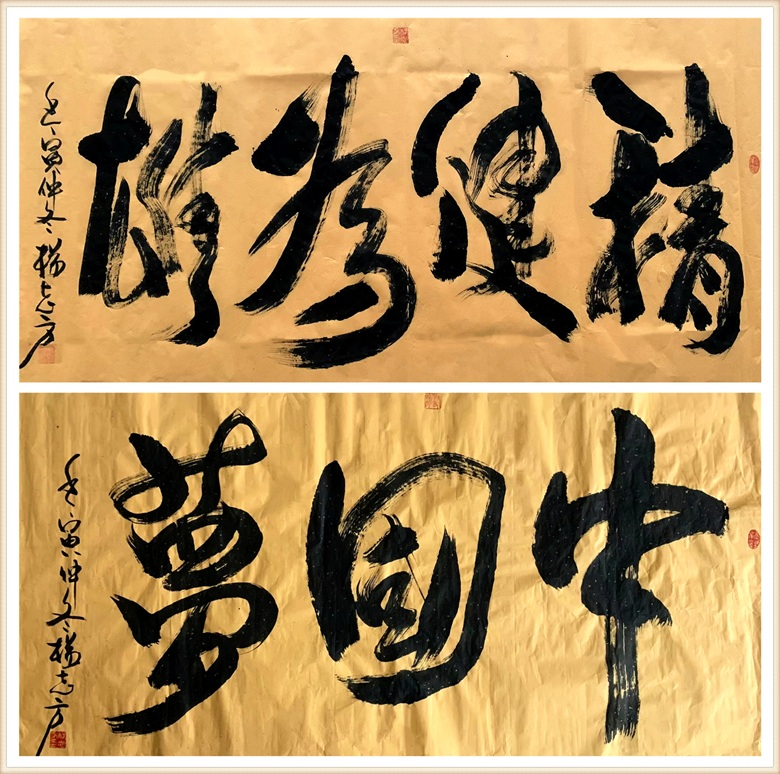 積健為雄
壬寅仲冬楊志方
中國夢
壬寅仲冬楊志方